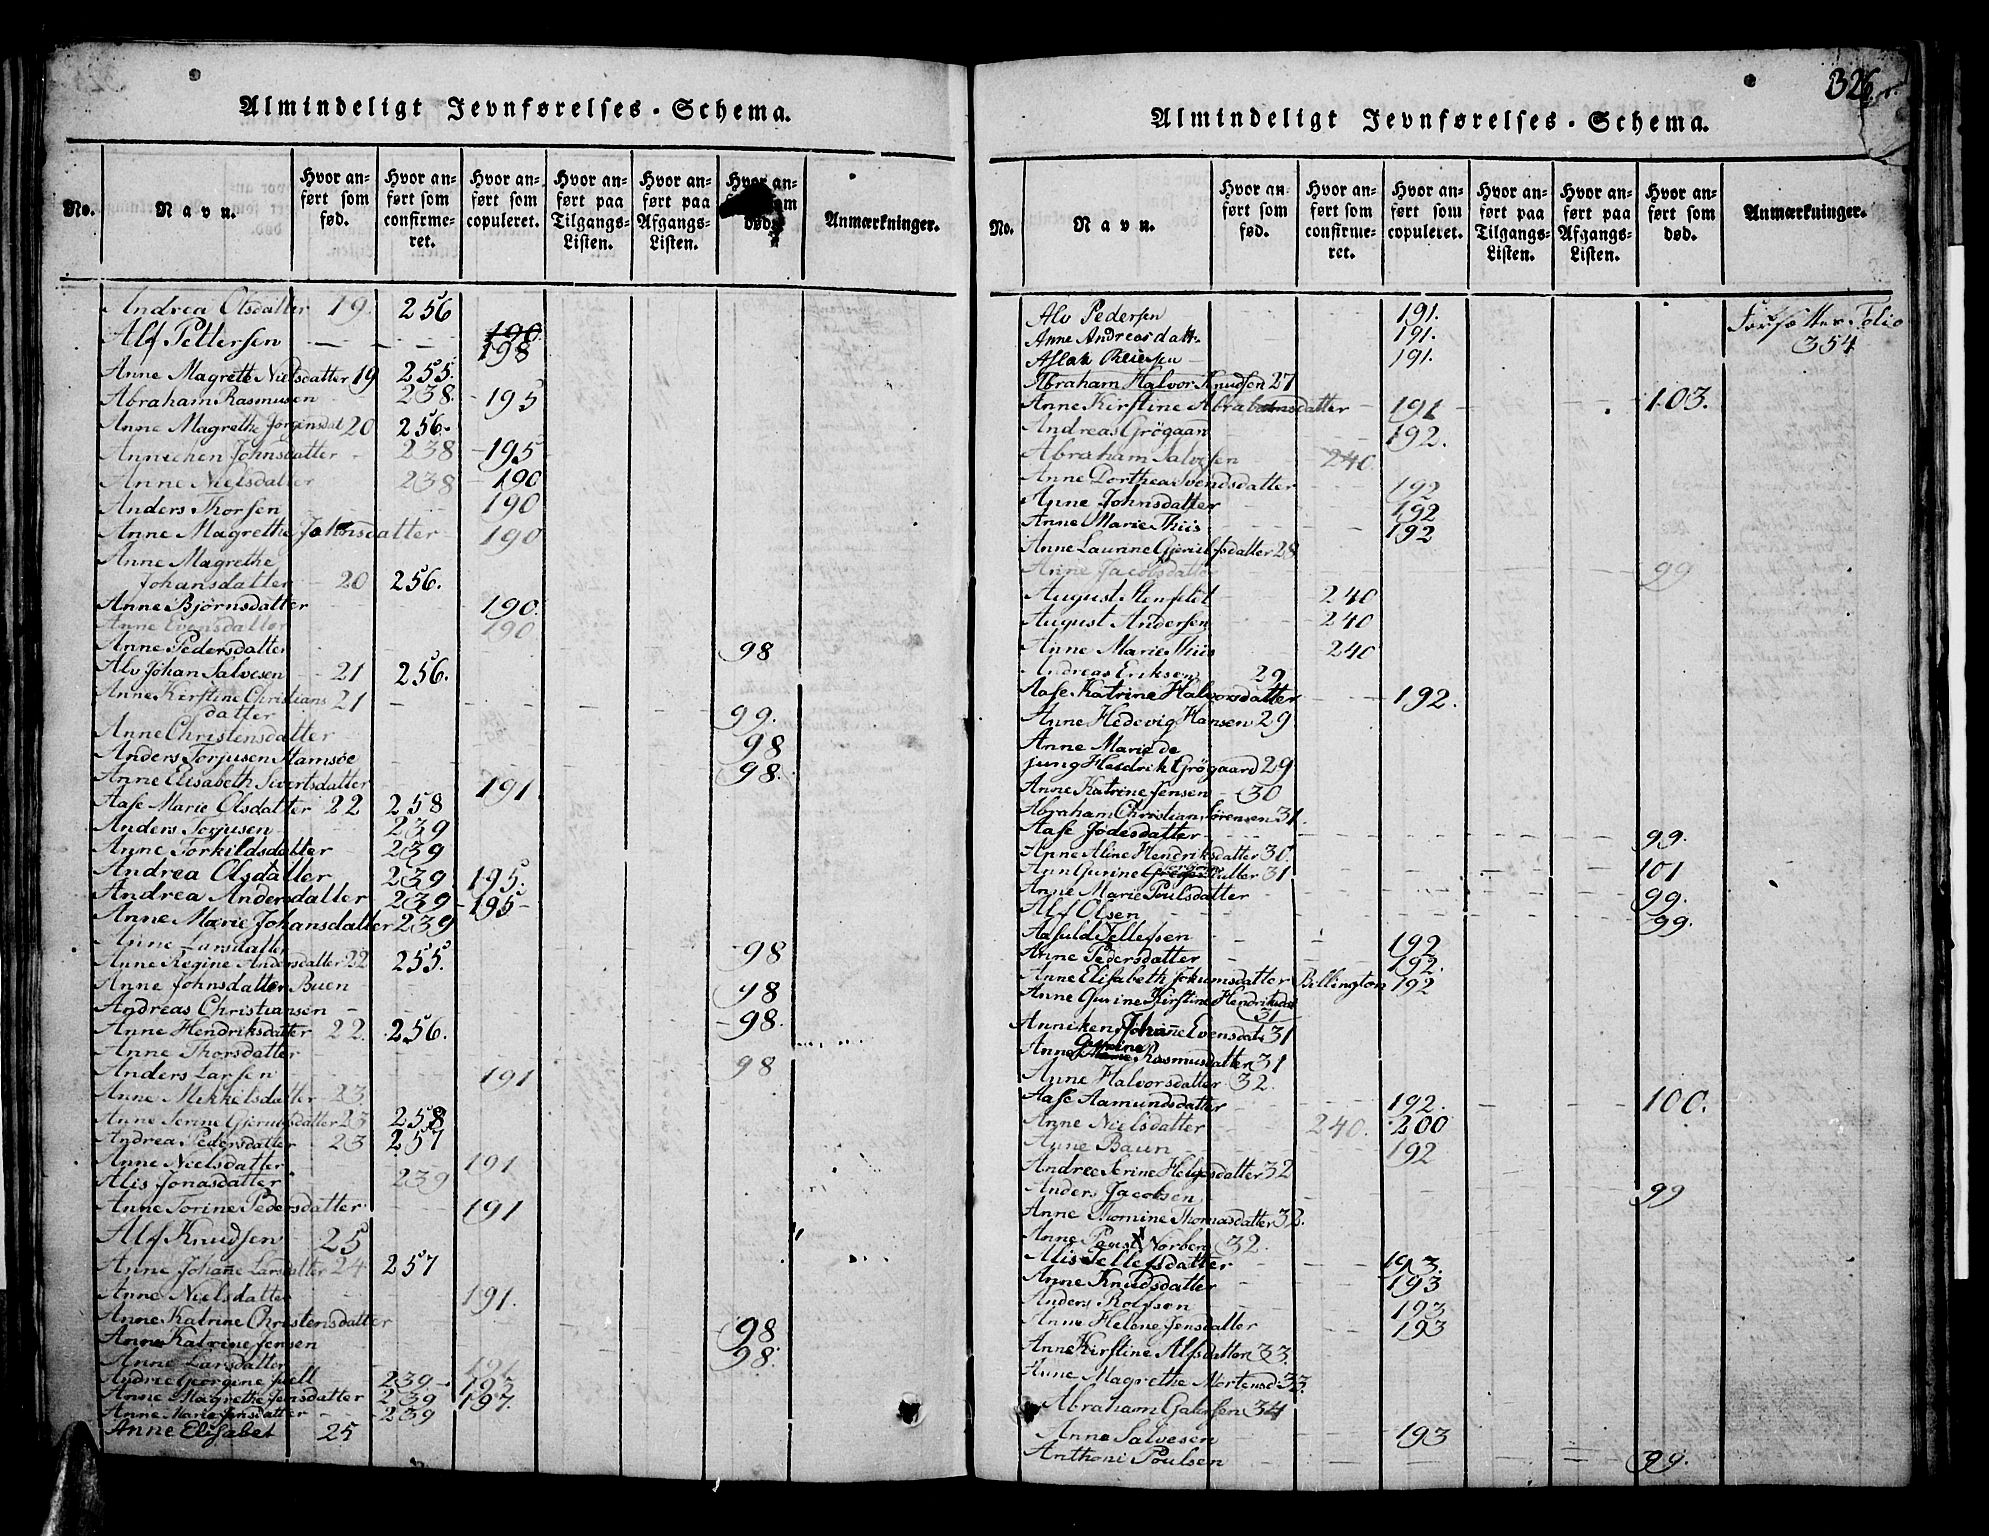 Almindeligt Jevnførelses-Schema.
No.
Navn.
Hvor anført som fød.
Hvor anført som confirmeret.
Hvor anført som copuleret.
Hvor anført paa Tilgangs-Listen.
Hvor anført paa Afgangs-Listen.
Hvor an- død.
Anmærkninger.
Andrea Olsdatter 19. 256
Alf Pettersen 190 198
Anne Magrette Nielsdatter 19 255.
Abraham Rasmusen 238. 195
Anne Magrethe Jørgensdat 20 256.
Annichen Johnsdatter 238 195
Anne Nielsdatter 238 190
Anders Thorsen 190
Anne Magrethe Johnsdatter 190
Anne Magrethe
Johansdatter 20 256.
Anne Bjørnsdatter 190.
Anne Evensdatter 190
Anne Pedersdatter 98
Alv Johan Salvesen 21 256.
Anne Kirstine Christians 21
datter 99.
Anne Christensdatter 98
Anders Torjusen Hamsøe 98.
Anne Elisabeth Sivertsdatter 191.
Aase Marie Olsdatter 22 258
Anders Torjusen 239
Anne Torkildsdatter 239
Andrea Olsdatter 239 195.
Andrea Andersdatter 239 195
Anne Marie Johansdatter 239
Anne Larsdatter 98
Anne Regine Andersdatter 22 255.
Anne Johnsdatter Buen 98
Andreas Christiansen 98.
Anne Hendriksdatter 22. 256.
Anne Thorsdatter 98
Anders Larsen 191
Anne Mikkelsdatter 23
Anne Serine Gjerulfsdatter 23 258
Andrea Pedersdatter 23 257
Anne Nielsdatter 191
Alis Jonasdatter 239
Anne Torine Pedersdatter 191
Alf Knudsen 25
Anne Johane Larsdatter 24 257
Anne Nielsdatter 191.
Anne Katrine Christensdatter 98
Anne Katrine Jensen 98.
Anne Larsdatter 191
Andree Georgine Juell 239 193
Anne Magrethe Jensdatter 239 197.
Anne Marie Jensdatter 239
Anne Elisabet 25
326
Almindeligt Jevnførelses-Schema.
No.
Navn.
Hvor anført som fød.
Hvor anført som confirmeret.
Hvor anført som copuleret.
Hvor anført paa Tilgangs-Listen.
Hvor anført paa Afgangs-Listen.
Hvor anført som død.
Anmærkninger.
Alv Pedersen 191. Forsætter Folio
Anne Andreasdatt. 191. 354
Aslak 191.
Abraham Halvor Knudsen 27 103.
Anne Kirstine Abrahamsdatter 191
Andreas Grögaan 192.
Abraham Salvesen 240
Anne Dorthea Svendsdatter 192
Anne Johnsdatter 192
Anne Marie Thiis 192
Anne Laurine Gjerulfsdatter 28
Anne Jacobsdatter 99
August Stenfeldt 240
August Andersen 240
Anne Marie Thiis 240
Andreas Eriksen 29
Aase Katrine Halvorsdatter 192.
Anne Hedevig Hansen 29
Anne Marie de
jung Hendrik Grögaard 29
Anne Katrine Jensen 30
Abraham Christian Sörensen 31.
Aase Jödesdatter 99.
Anne Aline Hendriksdatter 30. 101
Ann Gurine 31
Anne Marie Poulsdatter 99.
Alf Olsen 99.
Aasuld Tellefsen 192
Anne Pedersdatter 192.
Anne Elisabeth Jokumsdatter Billington 192
Anne Gurine Kirstine Hendriksdat
31
Anniken Johane Evensdat 31
Anne Gurine Rasmusdatter 31
Anne Halvorsdatter 32.
Aase Aamundsdatter 192. 100.
Anne Nielsdatter 240. 200
Anne Baun 192
Andree Serine Helgesdatter 32
Anders Jacobsen 99
Anne Thomine Thomasdatter 32.
Anne Norberg 32.
Alis Tellefsdatter 193.
Anne Knudsdatter 193
Anders Rolfsen 193
Anne Helene Jensdatter 193
Anne Kirstine Alfsdatter 33.
Anne Magrethe Mortensd 33.
Abraham Galersen 34
Anne Salvesen 193
Anthoni Poulsen 99.